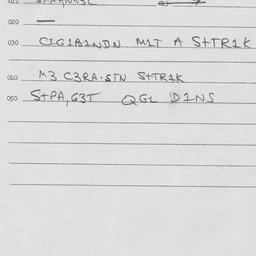 020 —
030 C1G1A1NDN M1T A StTR1K
040 M3 C3RA·STN StTR1K
050 StPA,G3T QGL D1NS